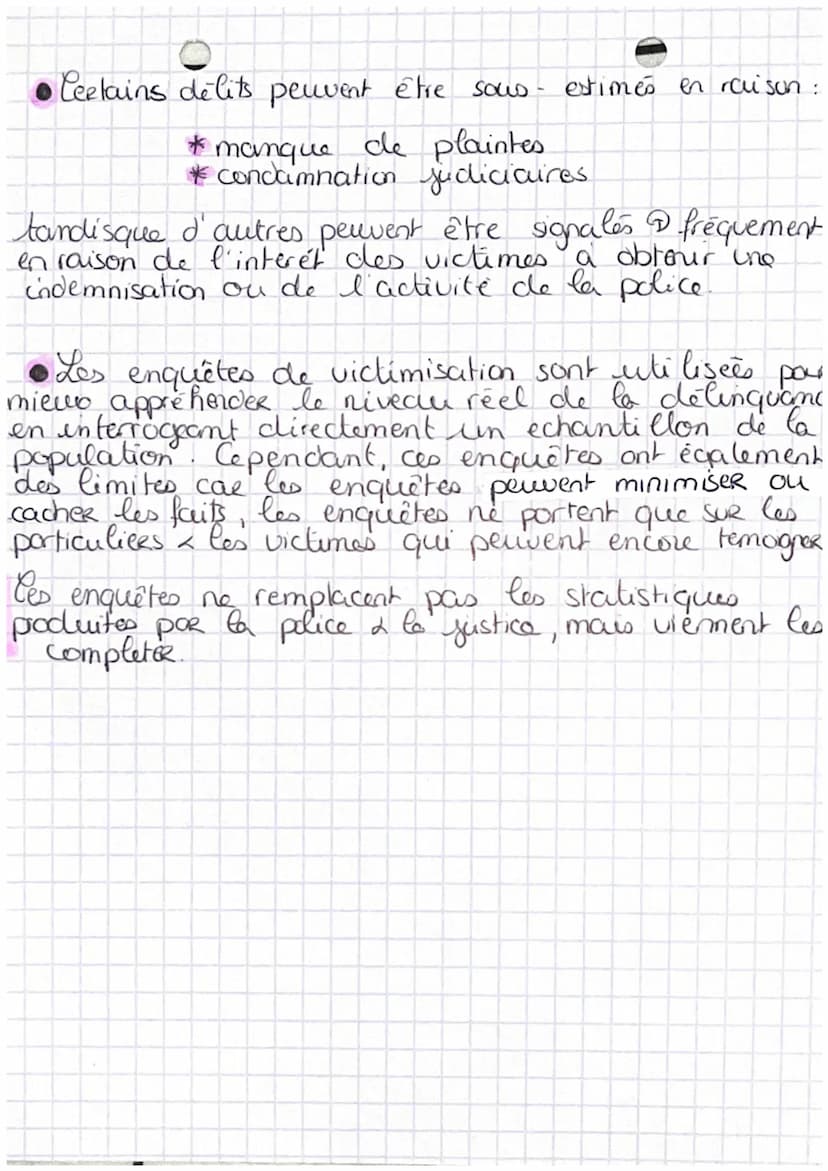 ● Certains délits peuvent être sous-estimés en raison :
* manque de plaintes
* condamnation judiciaires
tandisque d'autres peuvent être signalés ⊕ fréquement
en raison de l'interêt des victimes à obtenir une
indemnisation ou de l'activité de la police.
● Les enquêtes de victimisation sont utilisées pour
mieux appréhender le niveau réel de la délinquanc
en interrogeant directement un echantillon de la
population. Cependant, ces enquêtes ont également
des limites car les enquêtes peuvent minimiser ou
cacher les faits, les enquêtes ne portent que sur les
particuliers & les victimes qui peuvent encore temogner
Ces enquêtes ne remplacent pas les statistiques
produites par la police & la justice, mais viennent les
completer.